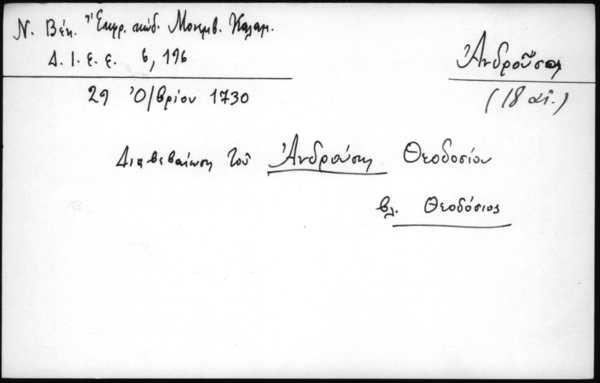 Ν. Βέη. Ἔκφρ. κώδ. Μονεμβ. Καλαμ.
Δ. Ι. Ε. Ε. 6, 196
Ἀνδροῦσα
(18 αἰ.)
29 Ὀ/βρίου 1730
Διαβεβαίωση τοῦ Ἀνδρούσης Θεοδοσίου
βλ. Θεοδόσιος